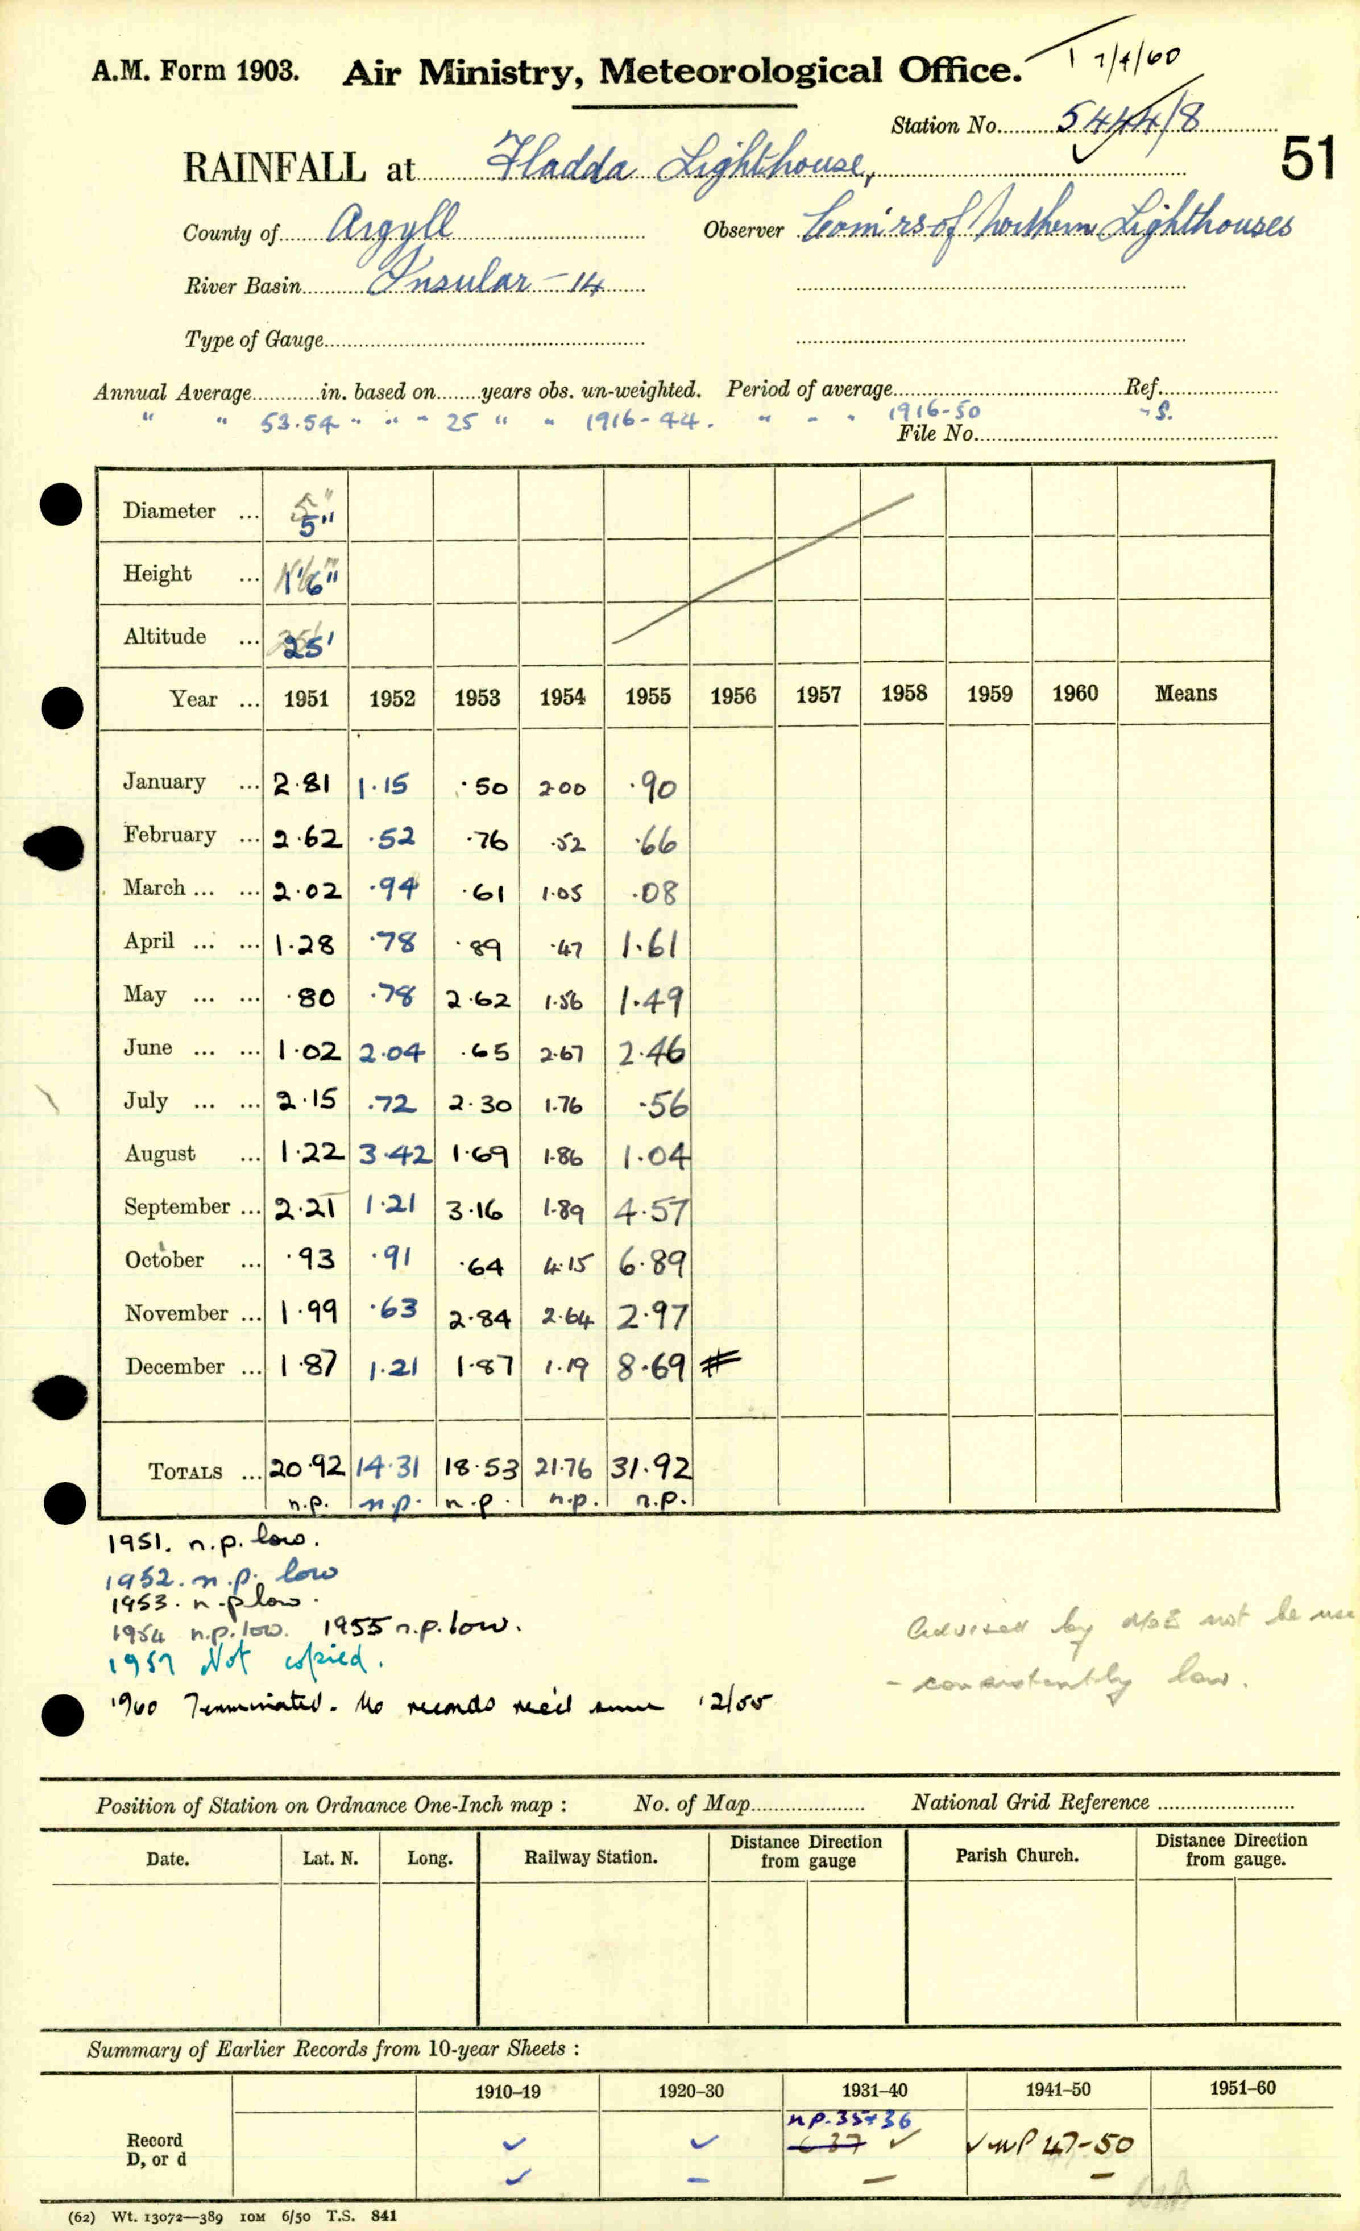 A.M. Form 1903. Air Ministry, Meteorological Office. 7/4/60
Station No. 5444/8
51
RAINFALL at Fladda Lighthouse,
County of Argyll Observer Com'rs of Northern Lighthouses
River Basin Insular - 14
Type of Gauge
Annual Average in. based on years obs. un-weighted. Period of average Ref.
" " 53.54 " " " 25 " " 1916-44. " " " 1916-50 S.
File No.
Diameter ... 5" 5"
Height ... 1'6"
Altitude ... 25'
Year ... 1951 1952 1953 1954 1955 1956 1957 1958 1959 1960 Means
January ... 2.81 1.15 .50 2.00 .90
February ... 2.62 .52 .76 .52 .66
March ... ... 2.02 .94 .61 1.05 .08
April ... ... 1.28 .78 .89 .47 1.61
May ... ... .80 .78 2.62 1.56 1.49
June ... ... 1.02 2.04 .65 2.67 2.46
July ... ... 2.15 .72 2.30 1.76 .56
August ... 1.22 3.42 1.69 1.86 1.04
September ... 2.21 1.21 3.16 1.89 4.57
October ... .93 .91 .64 4.15 6.89
November ... 1.99 .63 2.84 2.64 2.97
December ... 1.87 1.21 1.87 1.19 8.69 #
TOTALS ... 20.92 14.31 18.53 21.76 31.92
n.p. n.p. n.p. n.p. n.p.
1951. n.p. low.
1952. n.p. low
1953. n.p low.
1954 n.p. low. 1955 n.p. low.
Advised by not be use
1957 Not copied.
- consistently low.
1960 Terminated. No records rec'd since 12/55
Position of Station on Ordnance One-Inch map : No. of Map National Grid Reference
Date. Lat. N. Long. Railway Station. Distance Direction from gauge Parish Church. Distance Direction from gauge.
Summary of Earlier Records from 10-year Sheets :
1910–19 1920–30 1931–40 1941–50 1951–60
n.p. 35+36
Record ✓ ✓ 37 ✓ ✓ n.p 47-50
D, or d ✓ – – –
(62) Wt. 13072—389 10M 6/50 T.S. 841